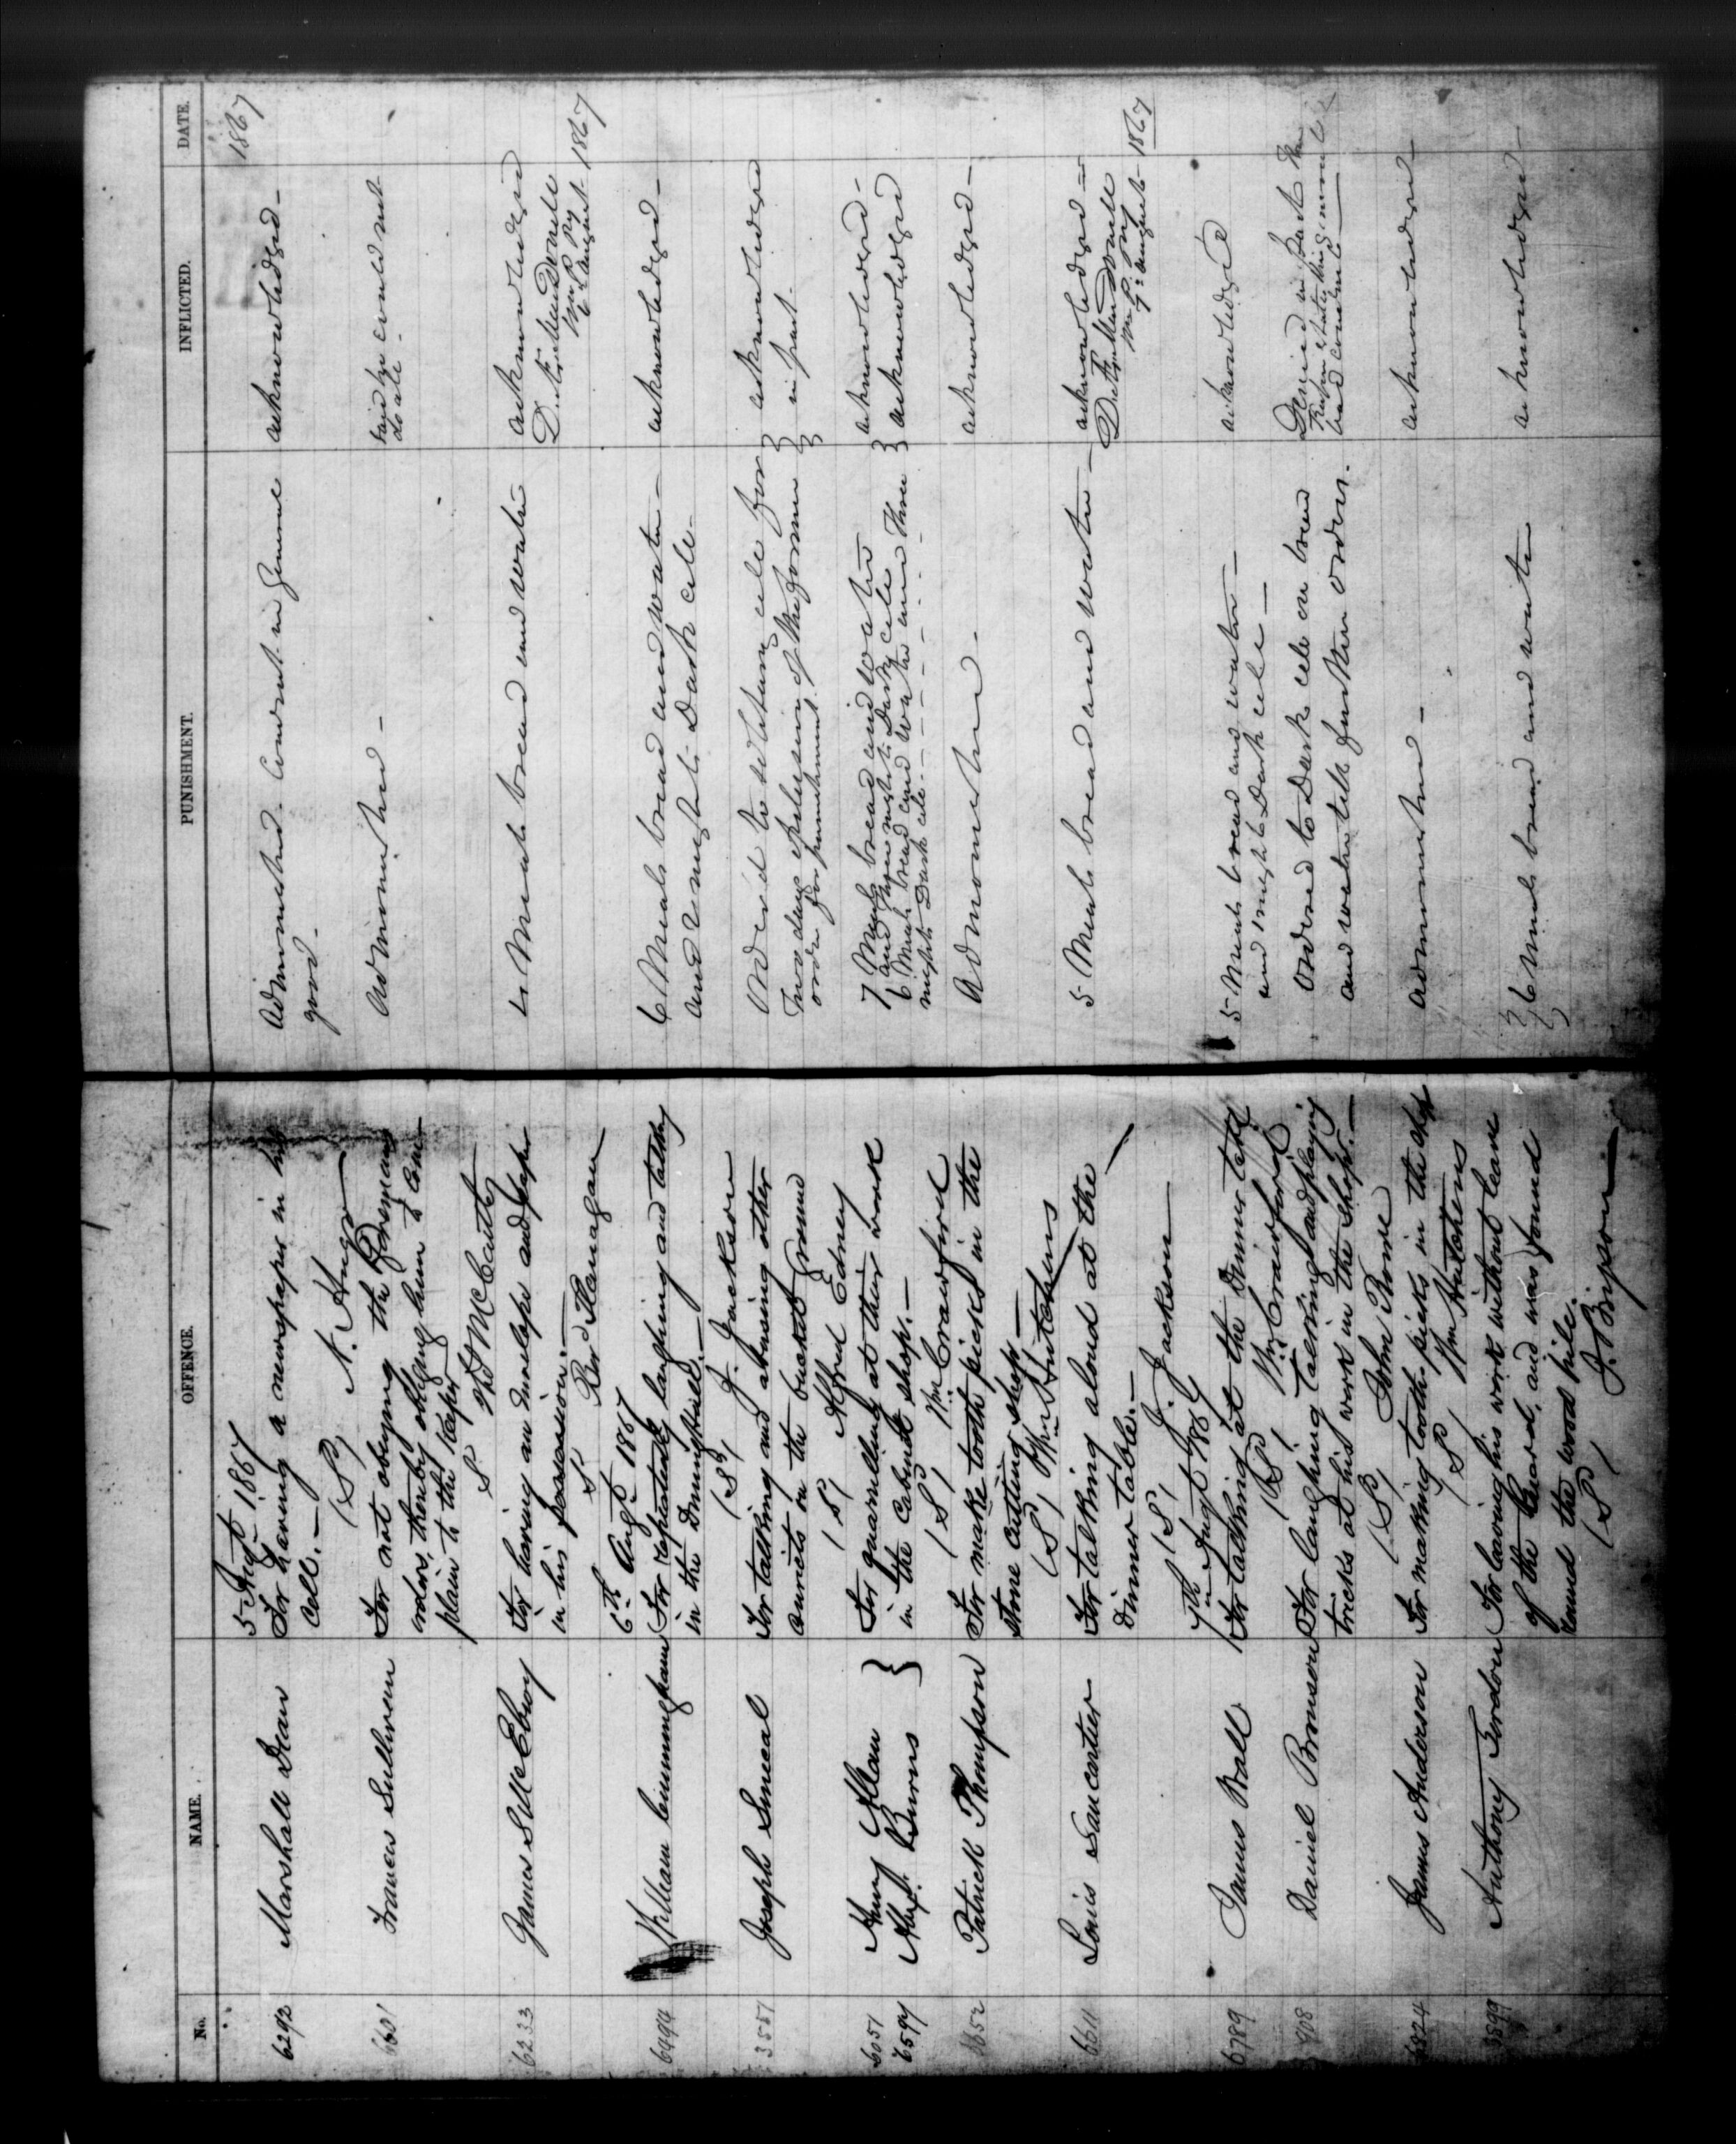 No. NAME. OFFENCE. PUNISHMENT. INFLICTED. DATE.
5 Augt 1867
1867
6292 Marshall Dean For having a newspaper in his
cell.—
(S) N. Anger
Admonished. Conduct in General
good.
acknowledged—
6601 Frances Sullivan For not obeying the Foremans
orders thereby obliging him to com
plain to the Keeper
S Thos McCarthy
Admonished—
said he could not
do all—
6233 James S McElroy For having an Envelope and paper
in his possession.—
S Red Flanagan
4 Meals bread and water
acknowledged
D. Æ. MacDonell
W P. P.y
6 August 1867
6th Augt 1867
6494 William Cunningham For repeatedly laughing and talking
in the Dining Hall.—
(S) J. Jackson
6 Meals bread and water—
and 2 nights Dark cell—
acknowledged—
3551 Joseph Smeal For talking and abusing other
convicts on the bucket ground
(S) Alfred Edney
Order'd to solitary cell for
Two days
order for punishment.
acknowledged
in part—
6051 Henry Allan
6597 Alex. Burns
For quarrelling at their work
in the Cabinet shop.—
(S) Wm Crawford
7 Meals bread and water
and three nights Dark cell
6 Meals bread and water and Three
nights Dark cell
acknowledged—
acknowledged
Patrick Thompson For make tooth picks in the
stone cutting shop—
(S) Wm Hutchens
Admonished—
acknowledged—
6611 Louis Lancontier For talking aloud at the
Dinner table.—
(S) J. Jackson
5 Meals bread and water—
acknowledged—
D. Æ. MacDonell
W. P. P.y
7 August 1867
7th Augt 1867
6789 James Ball For talking at the Dinner table
(S) Wm Crawford
5 Meals bread and water—
and 1 night Dark cell—
acknowledged
Daniel Bronson For laughing talking and playing
tricks at his work in the shop.—
(S) John Rowe
Ordered to Dark cell on bread
and water till further orders.
Denied in part the
6824 James Anderson For making tooth picks in the shop
(S) Wm Hutchens
Admonished—
acknowledged—
Anthony Gordon For leaving his work without leave
of the Guard, and was found
round the wood pile.
(S) J. Bipson
6 Meals bread and water
acknowledged—